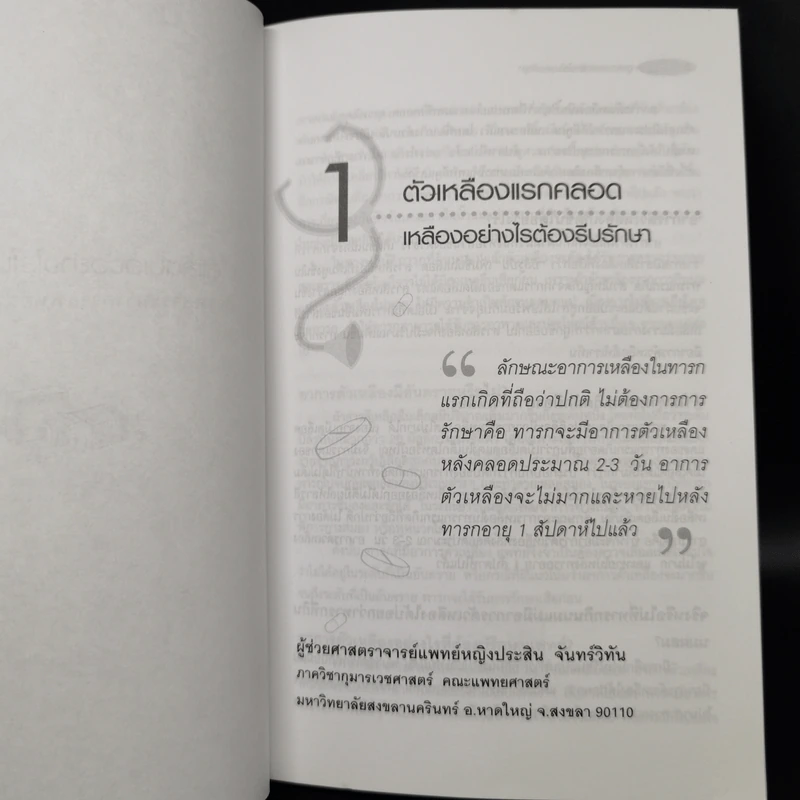 1
ตัวเหลืองแรกคลอด
เหลืองอย่างไรต้องรีบรักษา
“ ลักษณะอาการเหลืองในทารก
แรกเกิดที่ถือว่าปกติ ไม่ต้องการการ
รักษาคือ ทารกจะมีอาการตัวเหลือง
หลังคลอดประมาณ 2-3 วัน อาการ
ตัวเหลืองจะไม่มากและหายไปหลัง
ทารกอายุ 1 สัปดาห์ไปแล้ว ”
ผู้ช่วยศาสตราจารย์แพทย์หญิงประสิน จันทร์วิทัน
ภาควิชากุมารเวชศาสตร์ คณะแพทยศาสตร์
มหาวิทยาลัยสงขลานครินทร์ อ.หาดใหญ่ จ.สงขลา 90110